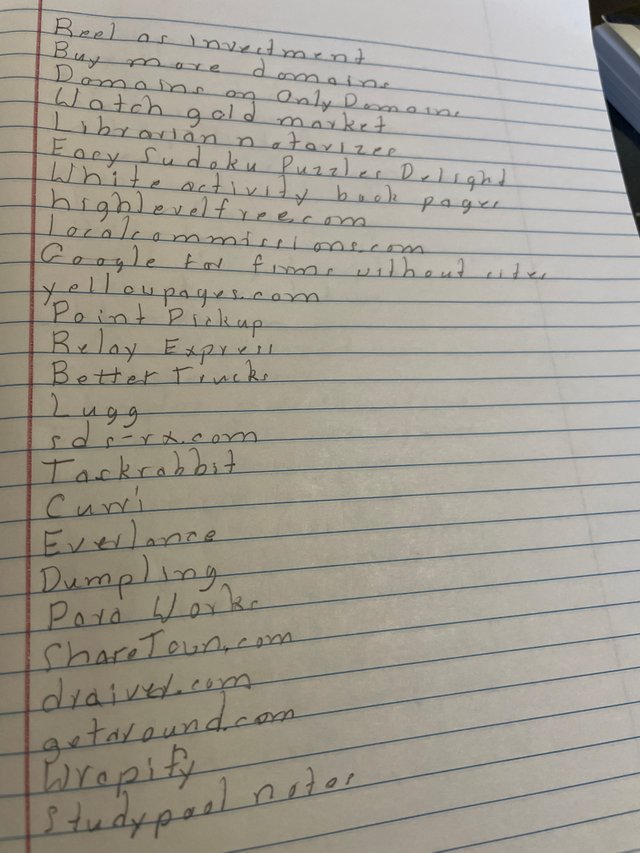 Reel as investment
Buy more domains
Domains on Only Domains
Watch gold market
Librarian notarizes
Easy Sudoku Puzzles Delight
White activity book pages
highlevelfree.com
localcommissions.com
Google for firms without sites
yellowpages.com
Point Pickup
Relay Express
Better Trucks
Lugg
sds-rx.com
Taskrabbit
Curri
Everlance
Dumpling
Para Works
ShareTown.com
draiver.com
getaround.com
Wrapify
Studypool notes